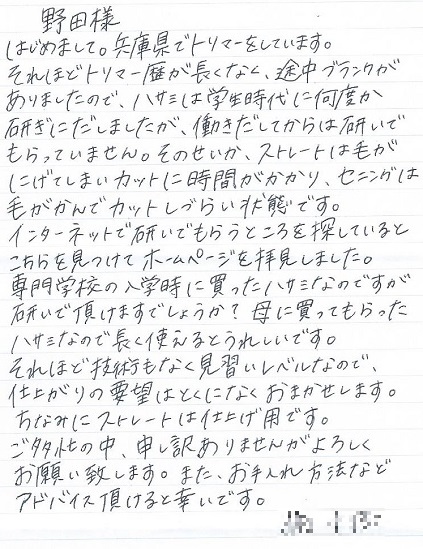 野田様
はじめまして。兵庫県でトリマーをしています。
それほどトリマー歴が長くなく、途中ブランクが
ありましたので、ハサミは学生時代に何度か
研ぎにだしましたが、働きだしてからは研いで
もらっていません。そのせいか、ストレートは毛が
にげてしまいカットに時間がかかり、セニングは
毛がかんでカットしづらい状態です。
インターネットで研いでもらうところを探していると
こちらを見つけてホームページを拝見しました。
専門学校の入学時に買ったハサミなのですが
研いで頂けますでしょうか？母に買ってもらった
ハサミなので長く使えるとうれしいです。
それほど技術もなく見習いレベルなので、
仕上がりの要望はとくになくおまかせします。
ちなみにストレートは仕上げ用です。
ご多忙の中、申し訳ありませんがよろしく
お願い致します。また、お手入れ方法など
アドバイス頂けると幸いです。